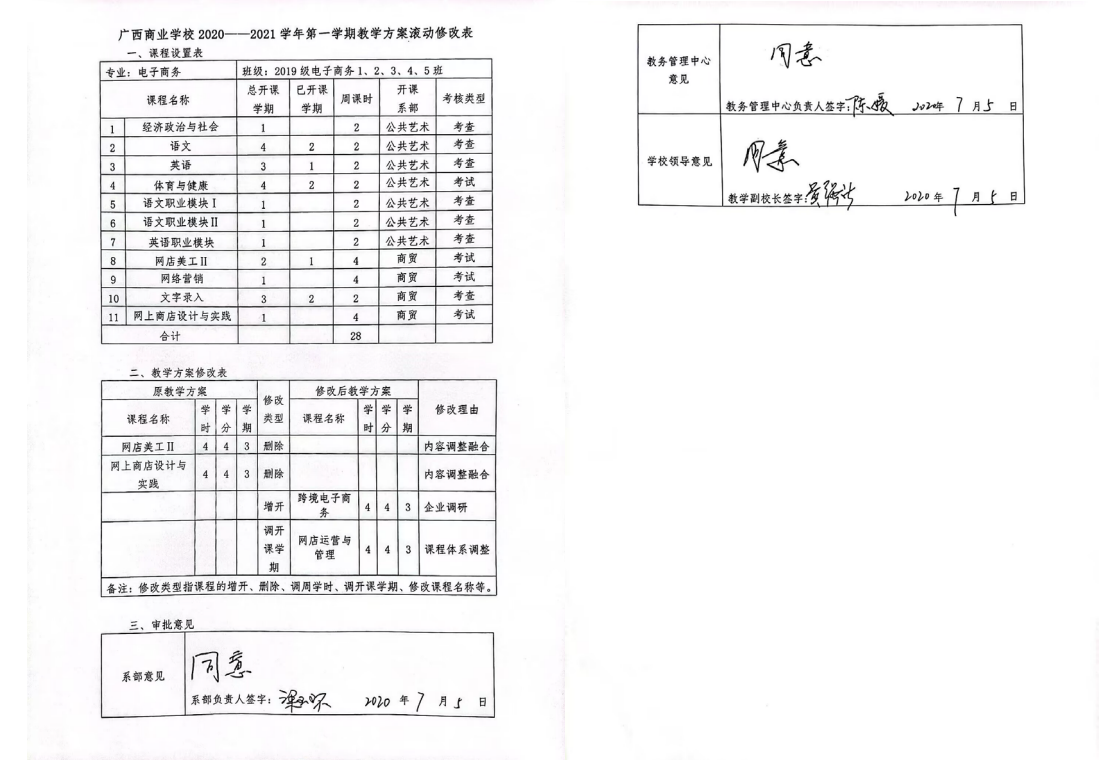 广西商业学校 2020——2021 学年第一学期教学方案滚动修改表
一、课程设置表
专业：电子商务 班级：2019 级电子商务 1、2、3、4、5 班
课程名称 总开课学期 已开课学期 周课时 开课系部 考核类型
1 经济政治与社会 1 2 公共艺术 考查
2 语文 4 2 2 公共艺术 考查
3 英语 3 1 2 公共艺术 考查
4 体育与健康 4 2 2 公共艺术 考试
5 语文职业模块Ⅰ 1 2 公共艺术 考查
6 语文职业模块Ⅱ 1 2 公共艺术 考查
7 英语职业模块 1 2 公共艺术 考查
8 网店美工Ⅱ 2 1 4 商贸 考试
9 网络营销 1 4 商贸 考试
10 文字录入 3 2 2 商贸 考查
11 网上商店设计与实践 1 4 商贸 考试
合计 28
二、教学方案修改表
原教学方案 修改类型 修改后教学方案 修改理由
课程名称 学时 学分 学期 课程名称 学时 学分 学期
网店美工Ⅱ 4 4 3 删除 内容调整融合
网上商店设计与实践 4 4 3 删除 内容调整融合
增开 跨境电子商务 4 4 3 企业调研
调开课学期 网店运营与管理 4 4 3 课程体系调整
备注：修改类型指课程的增开、删除、调周学时、调开课学期、修改课程名称等。
三、审批意见
系部意见
同意
系部负责人签字： 2020 年 7 月 5 日
教务管理中心意见
同意
教务管理中心负责人签字：陈媛 2020年 7 月 5 日
学校领导意见
同意
教学副校长签字： 2020 年 7 月 5 日